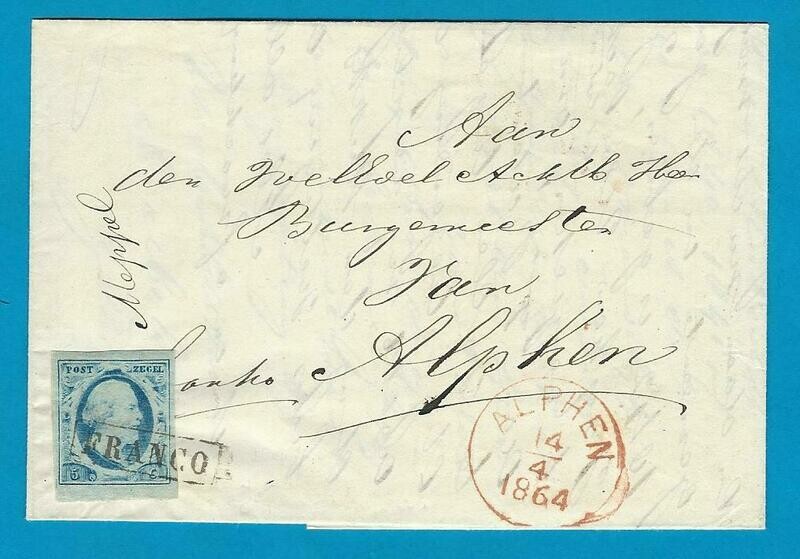 Aan
den Weledel Achtb Heer
Burgemeester
Van
Alphen
franko
Meppel
POST ZEGEL
5 C
FRANCO
ALPHEN
14
4
1864